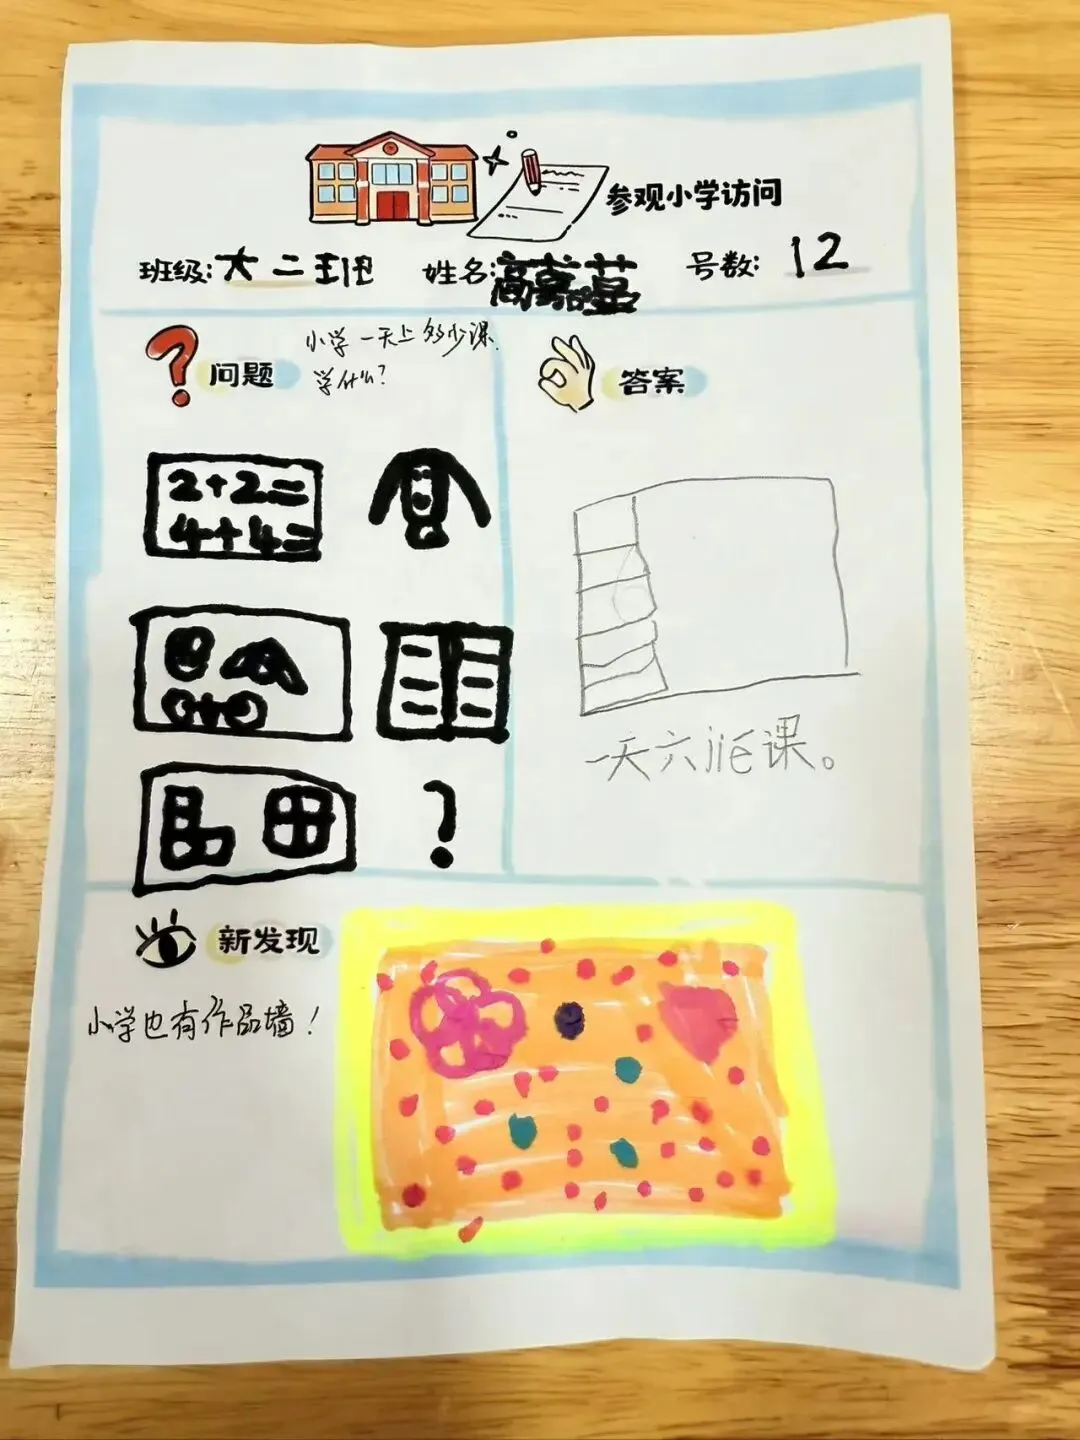 参观小学访问
班级:大二班 姓名: 号数:12
问题
小学一天上多少课.
学什么?
答案
2+2=
4+4=
?
一天六jié课。
新发现
小学也有作品墙!